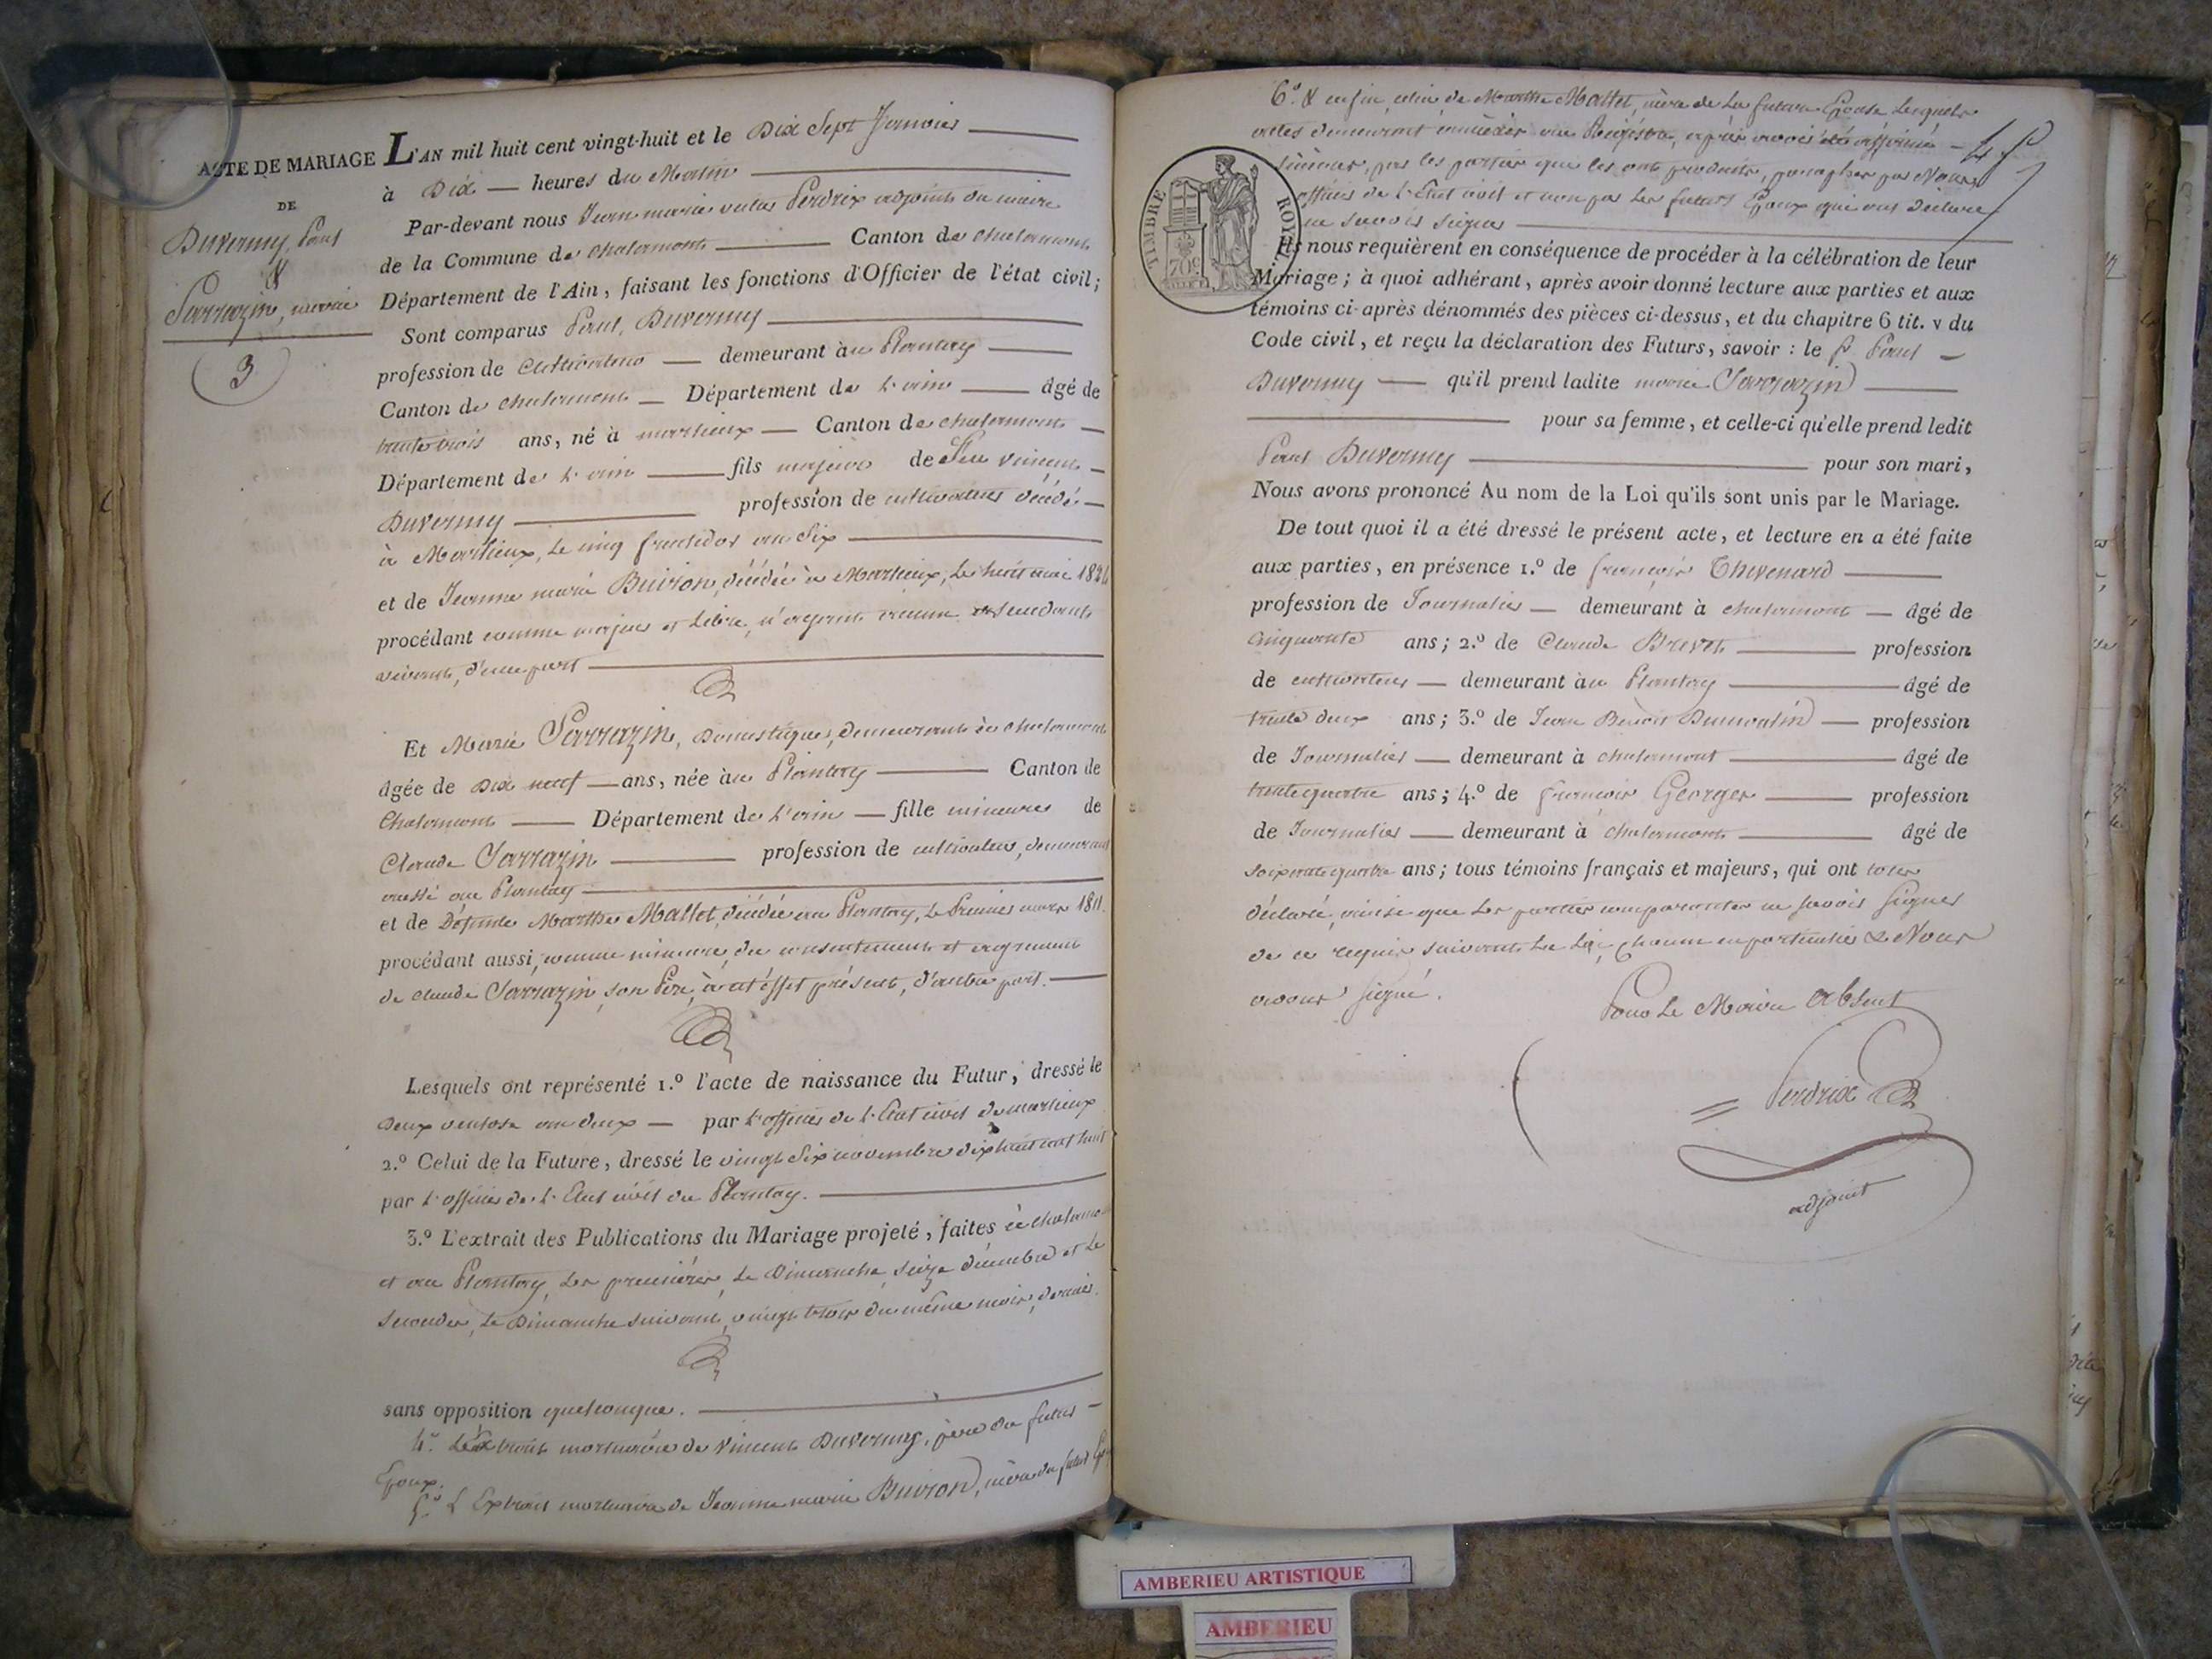 ACTE DE MARIAGE
DE
Duvernay, Paul
&
Sarrazin, marie
3
L'AN mil huit cent vingt-huit et le Dix Sept Janvier
à Dix heures du Matin
Par-devant nous Jean marie Perdrix adjoint du maire
de la Commune de chalamont Canton de chalamont
Département de l'Ain, faisant les fonctions d'Officier de l'état civil;
Sont comparus Paul Duvernay
profession de Cultivateur demeurant au Plantay
Canton de chalamont Département de l'ain âgé de
trente trois ans, né à marlieux Canton de chalamont
Département de l'ain fils majeur de Feu vincent
Duvernay profession de cultivateur décédé
à Marlieux, le cinq fructidor an Six
et de Jeanne marie Buiron, décédée à Marlieux, le huit mai
procédant comme majeur et libre, n'ayant aucun ascendant
vivant, d'une part
Et Marie Sarrazin, Domestique, demeurant à chalamont
âgée de Dix neuf ans, née au Plantay Canton de
Chalamont Département de l'ain fille mineure de
Claude Sarrazin profession de cultivateur, demeurant
aussi au Plantay
et de Défunte Marthe Mallet, décédée au Plantay, le Premier mars 1811.
procédant aussi, comme mineure, du consentement et agrément
de Claude Sarrazin, son Père, à cet effet présent, d'autre part.
Lesquels ont représenté 1.º l'acte de naissance du Futur, dressé le
Deux ventose an deux par l'officier de l'Etat civil de marlieux
2.º Celui de la Future, dressé le vingt Six novembre dix huit cent huit
par l'officier de l'Etat civil du Plantay.
3.º L'extrait des Publications du Mariage projeté, faites à Chalamont
et au Plantay, les premières, le Dimanche seize décembre et les
secondes, le Dimanche suivant, vingt trois du même mois, dernier.
sans opposition quelconque.
4.º L'Extrait mortuaire de Vincent Duvernay, père du futur
Epoux.
5.º L'Extrait mortuaire de Jeanne marie Buiron, mère du futur
6.º & enfin, celui de Marthe Mallet, mère de la future Epouse lesquels
actes demeurent annexés au Régistre, après avoir été
par les parties que les ont produits, paraphés par Nous,
officier de l'Etat civil et non par les futurs Epoux qui ont déclaré
ne savoir signer
TIMBRE ROYAL
70c
Ils nous requièrent en conséquence de procéder à la célébration de leur
Mariage; à quoi adhérant, après avoir donné lecture aux parties et aux
témoins ci-après dénommés des pièces ci-dessus, et du chapitre 6 tit. v du
Code civil, et reçu la déclaration des Futurs, savoir: le Sr Paul
Duvernay qu'il prend ladite marie Sarrazin
pour sa femme, et celle-ci qu'elle prend ledit
Paul Duvernay pour son mari,
Nous avons prononcé Au nom de la Loi qu'ils sont unis par le Mariage.
De tout quoi il a été dressé le présent acte, et lecture en a été faite
aux parties, en présence 1.º de françois Thevenard
profession de Journalier demeurant à chalamont âgé de
cinquante ans; 2.º de Claude Brevet profession
de cultivateur demeurant au Plantay âgé de
trente deux ans; 3.º de Jean Benoit Dumoulin profession
de Journalier demeurant à chalamont âgé de
trente quatre ans; 4.º de françois Georges profession
de Journalier demeurant à chalamont âgé de
soixante quatre ans; tous témoins français et majeurs, qui ont tous
déclaré, ainsi que les parties comparantes ne savoir signer
de ce requis suivant la loi, chacun en particulier & Nous
avons signé.
Pour Le Maire Absent
Perdrix
adjoint
AMBERIEU ARTISTIQUE
AMBERIEU